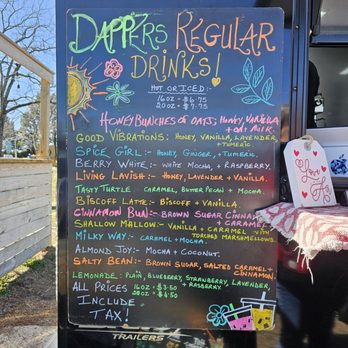 DAPPERS REGULAR
DRINKS!
HOT OR ICED:
16oz - $6.75
20oz - $7.75
HONEYBUNCHES OF OATS: HONEY, VANILLA
+ OAT MILK.
GOOD VIBRATIONS: HONEY, VANILLA, LAVENDER
+ TURMERIC
SPICE GIRL:- HONEY, GINGER, + TUMERIC.
BERRY WHITE:- WHITE MOCHA + RASPBERRY.
LIVING LAVISH:- HONEY, LAVENDER + VANILLA.
TASTY TURTLE CARAMEL, BUTTER PECAN + MOCHA.
BISCOFF LATTE:- BISCOFF + VANILLA.
CINNAMON BUN:- BROWN SUGAR CINNAMON
+ CARAMEL
SHALLOW MALLOW:- VANILLA + CARAMEL WITH
TORCHED MARSHMELLOWS.
MILKY WAY:- CARAMEL + MOCHA.
ALMOND JOY:- MOCHA + COCONUT.
SALTY BEAN:- BROWN SUGAR, SALTED CARAMEL +
CINNAMON.
LEMONADE: PLAIN, BLUEBERRY, STRAWBERRY, LAVENDER,
+ RASPBERRY
ALL PRICES
INCLUDE
TAX!
16oz - $3.50
20oz - $4.50
TRAILERS